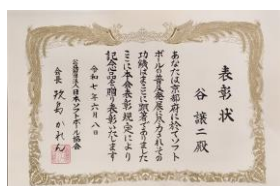 表彰状
谷 讓二殿
あなたは京都府に於てソフト
ボールの普及発展に尽力されその
功績はまことに顕著であります
ここに本会表彰規定により
記念品を贈り表彰いたします
令和七年六月八日
公益財団法人日本ソフトボール協会
会長